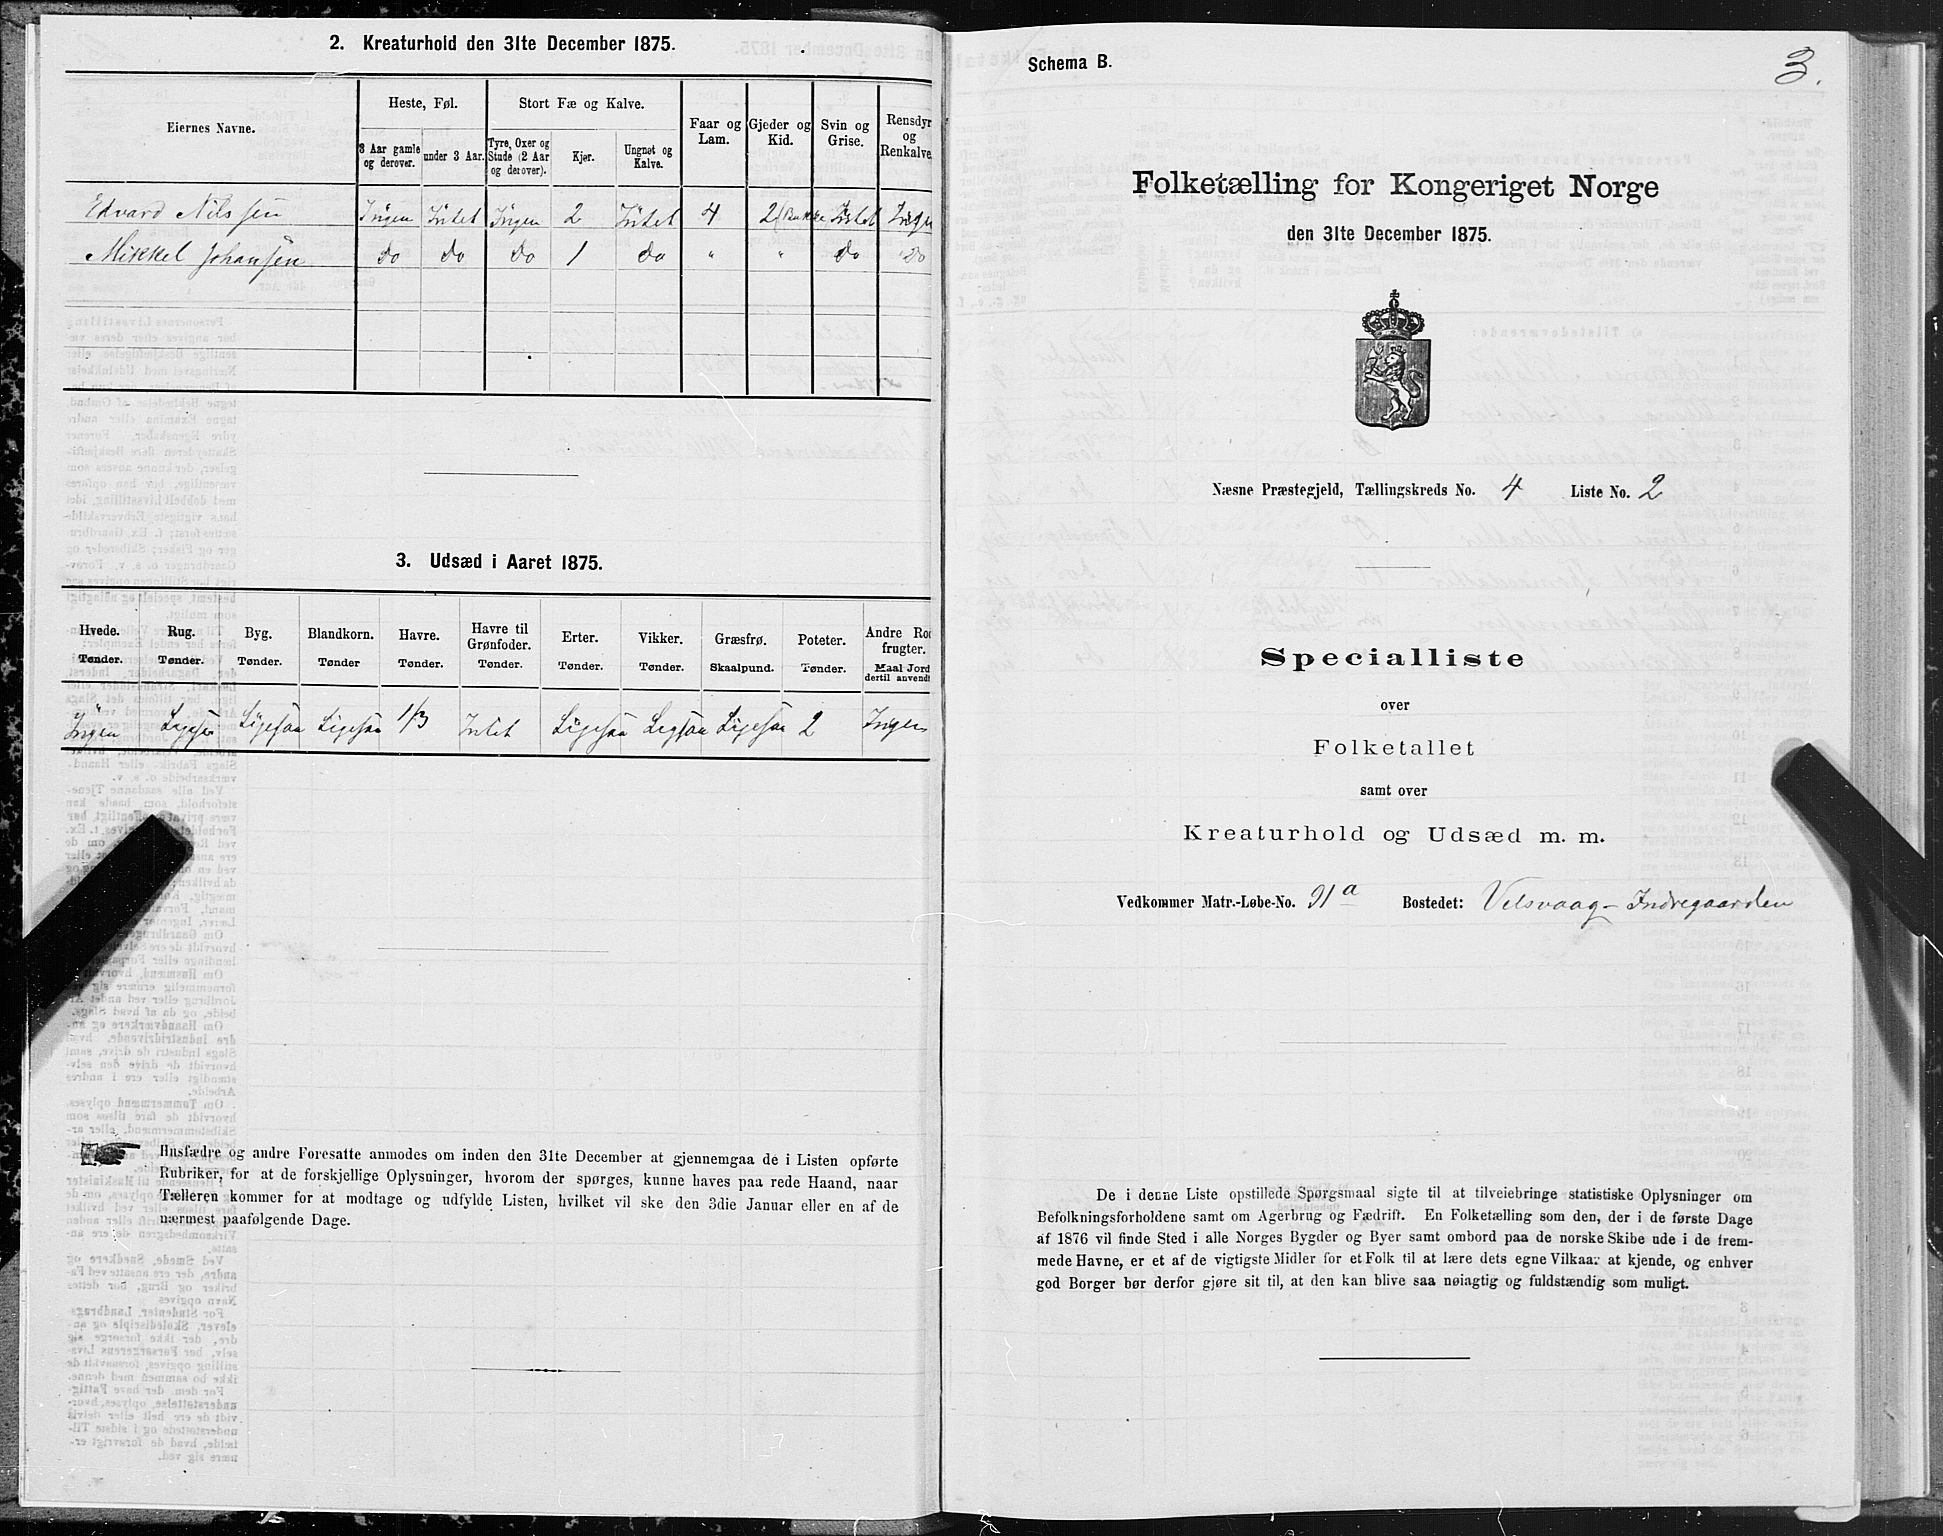 2. Kreaturhold den 31te December 1875.
Eiernes Navne.
Heste, Føl.
Stort Fæ og Kalve.
Faar og Lam.
Gjeder og Kid.
Svin og Grise.
Rensdyr og Renkalve.
3 Aar gamle og derover.
under 3 Aar.
Tyre, Oxer og Stude (2 Aar og derover).
Kjør.
Ungnøt og Kalve.
Edvard Nilssen Ingen Intet Ingen 2 Intet 4 2 Intet Ingen
Mikkel Johansen do do do 1 do " " do do
3. Udsæd i Aaret 1875.
Hvede. Rug. Byg. Blandkorn. Havre. Havre til Grønfoder. Erter. Vikker. Græsfrø. Poteter. Andre Rod frugter.
Tønder. Tønder. Tønder. Tønder Tønder. Tønder. Tønder. Tønder. Skaalpund. Tønder. Maal Jord dertil anvendt
Ingen Ligesaa Ligesaa Ligesaa 1/3 Intet Ligesaa Ligsaa Ligesaa 2 Ingen
Husfædre og andre Foresatte anmodes om inden den 31te December at gjennemgaa de i Listen opførte
Rubriker, for at de forskjellige Oplysninger, hvorom der spørges, kunne haves paa rede Haand, naar
Tælleren kommer for at modtage og udfylde Listen, hvilket vil ske den 3die Januar eller en af de
nærmest paafølgende Dage.
Schema B.
3.
Folketælling for Kongeriget Norge
den 31te December 1875.
Næsne Præstegjeld, Tællingskreds No. 4 Liste No. 2
Specialliste
over
Folketallet
samt over
Kreaturhold og Udsæd m. m.
Vedkommer Matr.-Løbe-No. 91a Bostedet: Velsvaag-Indregaarden
De i denne Liste opstillede Spørgsmaal sigte til at tilveiebringe statistiske Oplysninger om
Befolkningsforholdene samt om Agerbrug og Fædrift. En Folketælling som den, der i de første Dage
af 1876 vil finde Sted i alle Norges Bygder og Byer samt ombord paa de norske Skibe ude i de frem-
mede Havne, er et af de vigtigste Midler for et Folk til at lære dets egne Vilkaar at kjende, og enhver
god Borger bør derfor gjøre sit til, at den kan blive saa nøiagtig og fuldstændig som muligt.